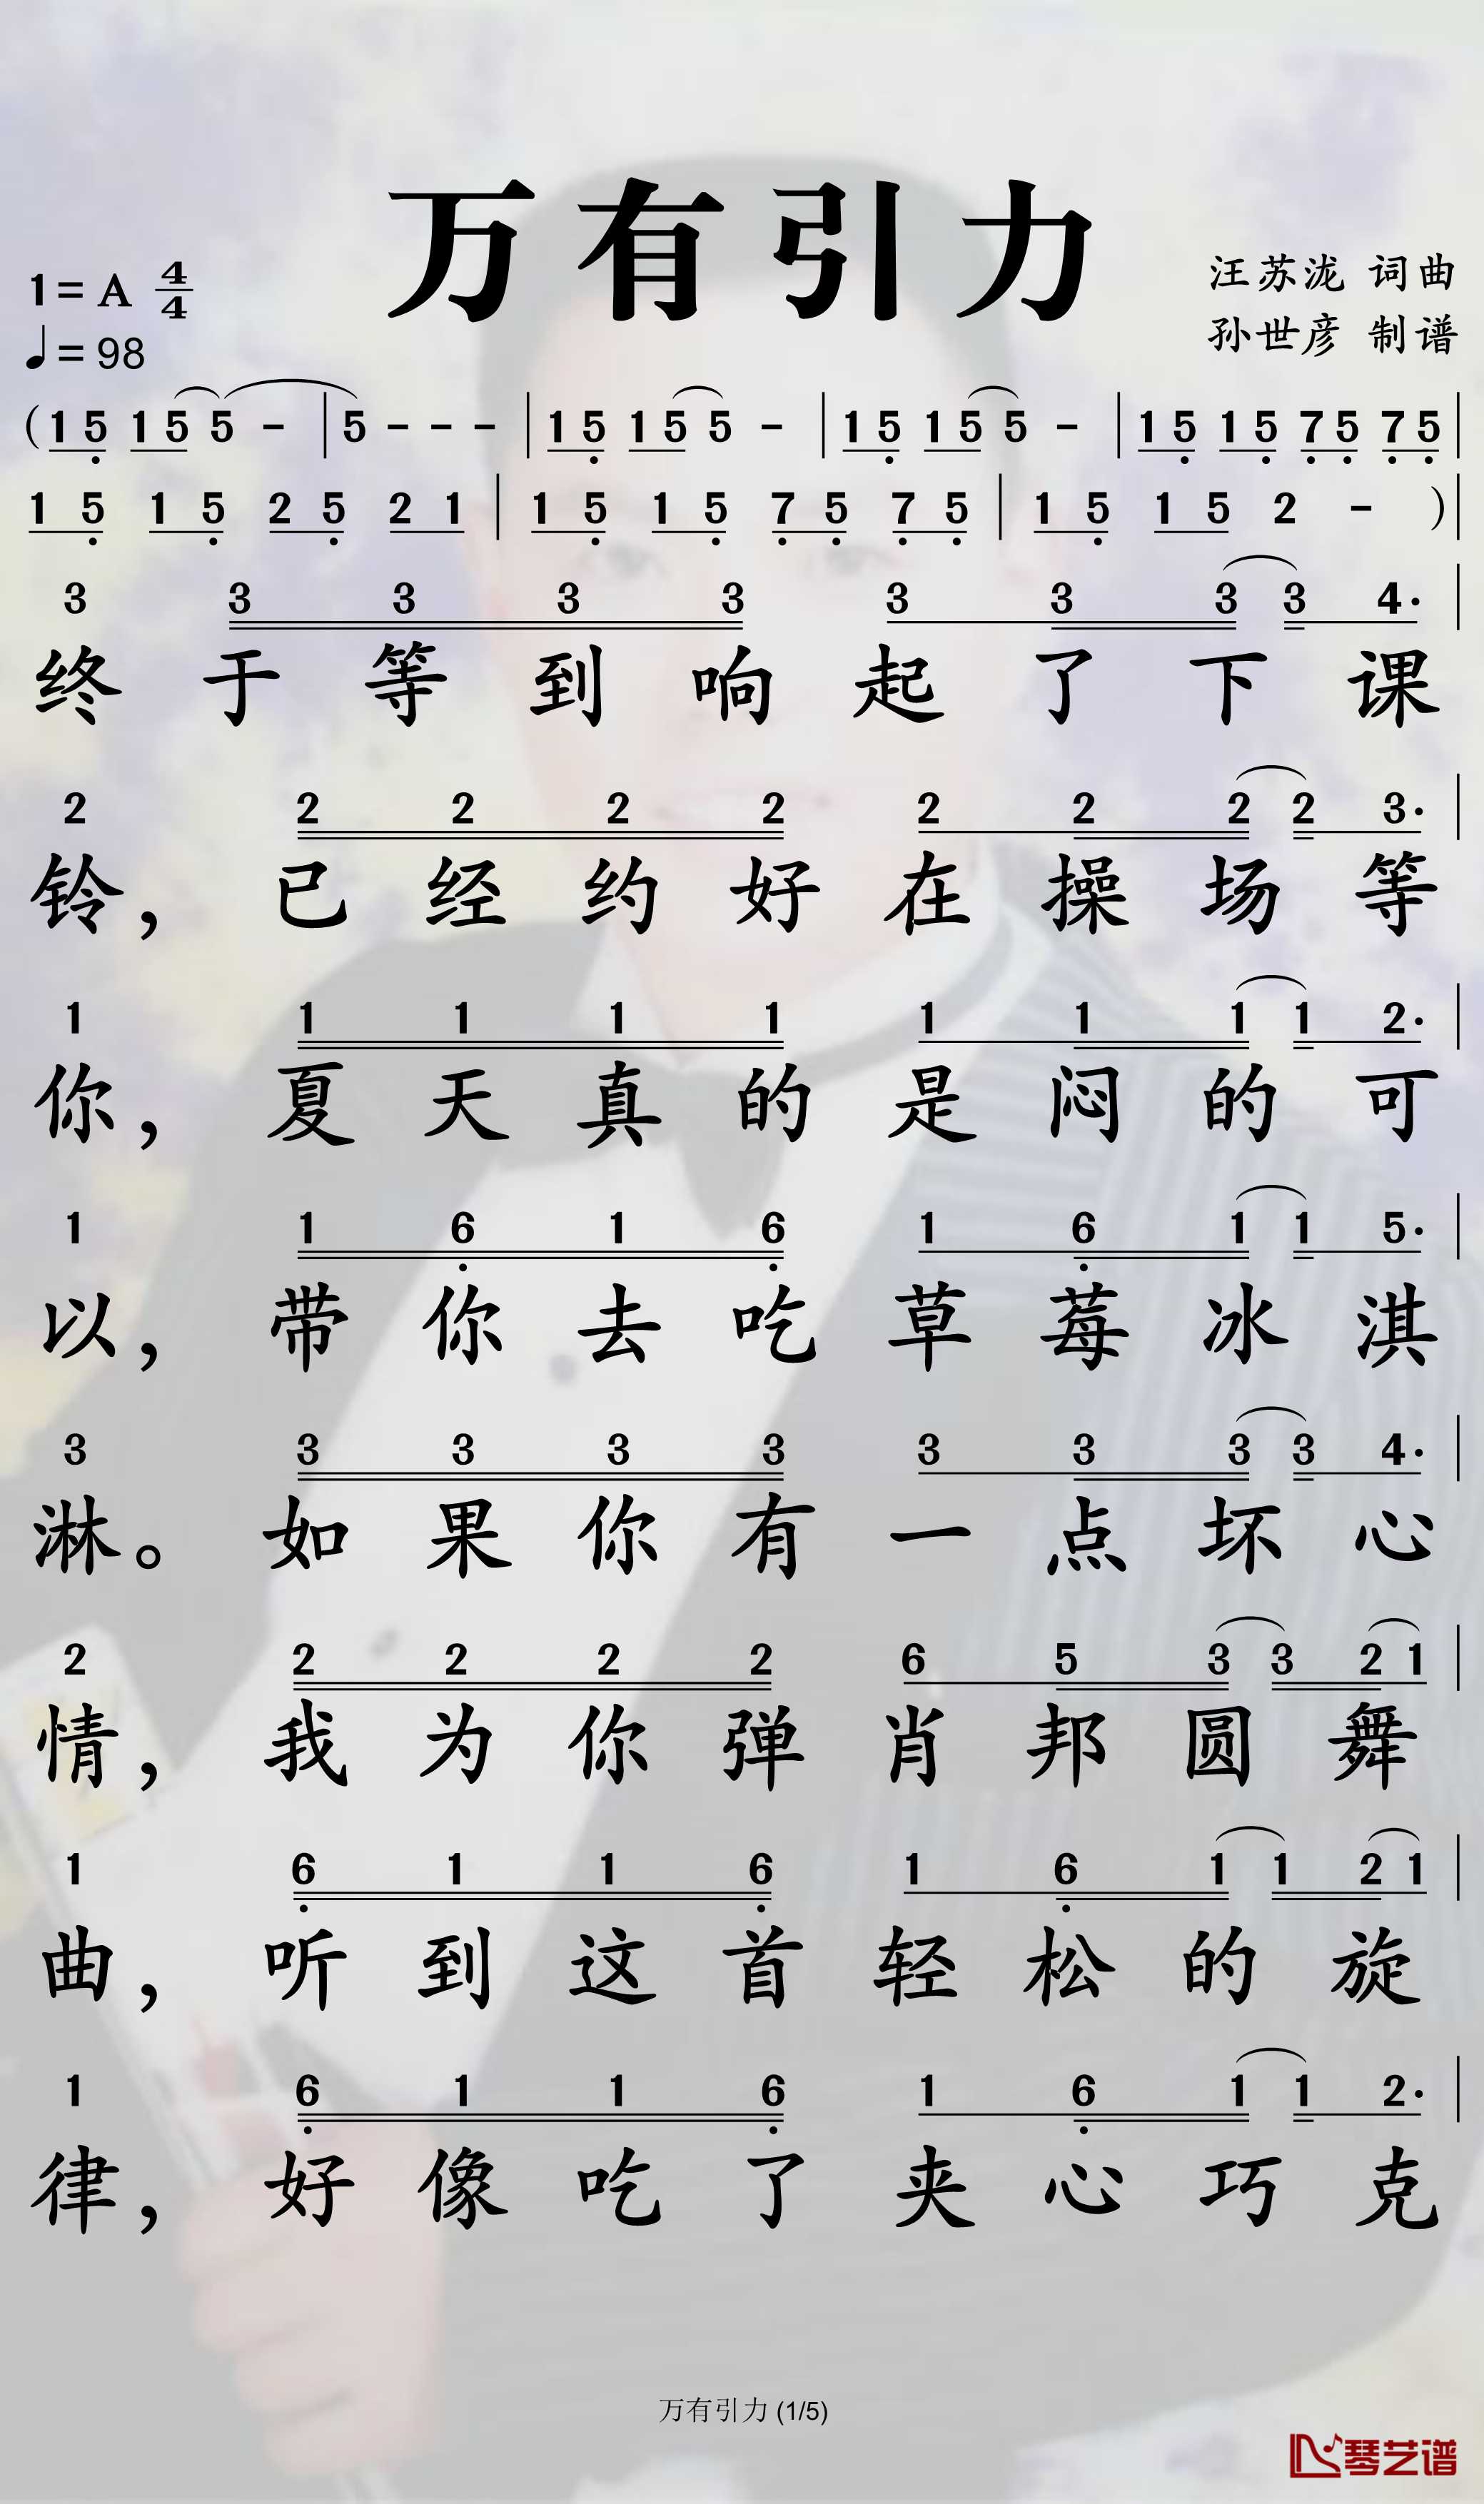 万有引力
1=A 4/4
♩=98
汪苏泷 词曲
孙世彦 制谱
(1 5̣ 1 5 5 - | 5 - - - | 1 5̣ 1 5 5 - | 1 5̣ 1 5 5 - | 1 5̣ 1 5̣ 7̣ 5̣ 7̣ 5̣ |
1 5̣ 1 5̣ 2 5̣ 2 1 | 1 5̣ 1 5̣ 7̣ 5̣ 7̣ 5̣ | 1 5̣ 1 5 2 - ) |
3 3 3 3 3 3 3 3 3 4. |
终于等到响起了下课
2 2 2 2 2 2 2 2 2 3. |
铃，已经约好在操场等
1 1 1 1 1 1 1 1 1 2. |
你，夏天真的是闷的可
1 1 6̣ 1 6̣ 1 6̣ 1 1 5. |
以，带你去吃草莓冰淇
3 3 3 3 3 3 3 3 3 4. |
淋。如果你有一点坏心
2 2 2 2 2 6 5 3 3 2 1 |
情，我为你弹肖邦圆舞
1 6̣ 1 1 6̣ 1 6̣ 1 1 2 1 |
曲，听到这首轻松的旋
1 6̣ 1 1 6̣ 1 6̣ 1 1 2. |
律，好像吃了夹心巧克
万有引力 (1/5)
琴艺谱